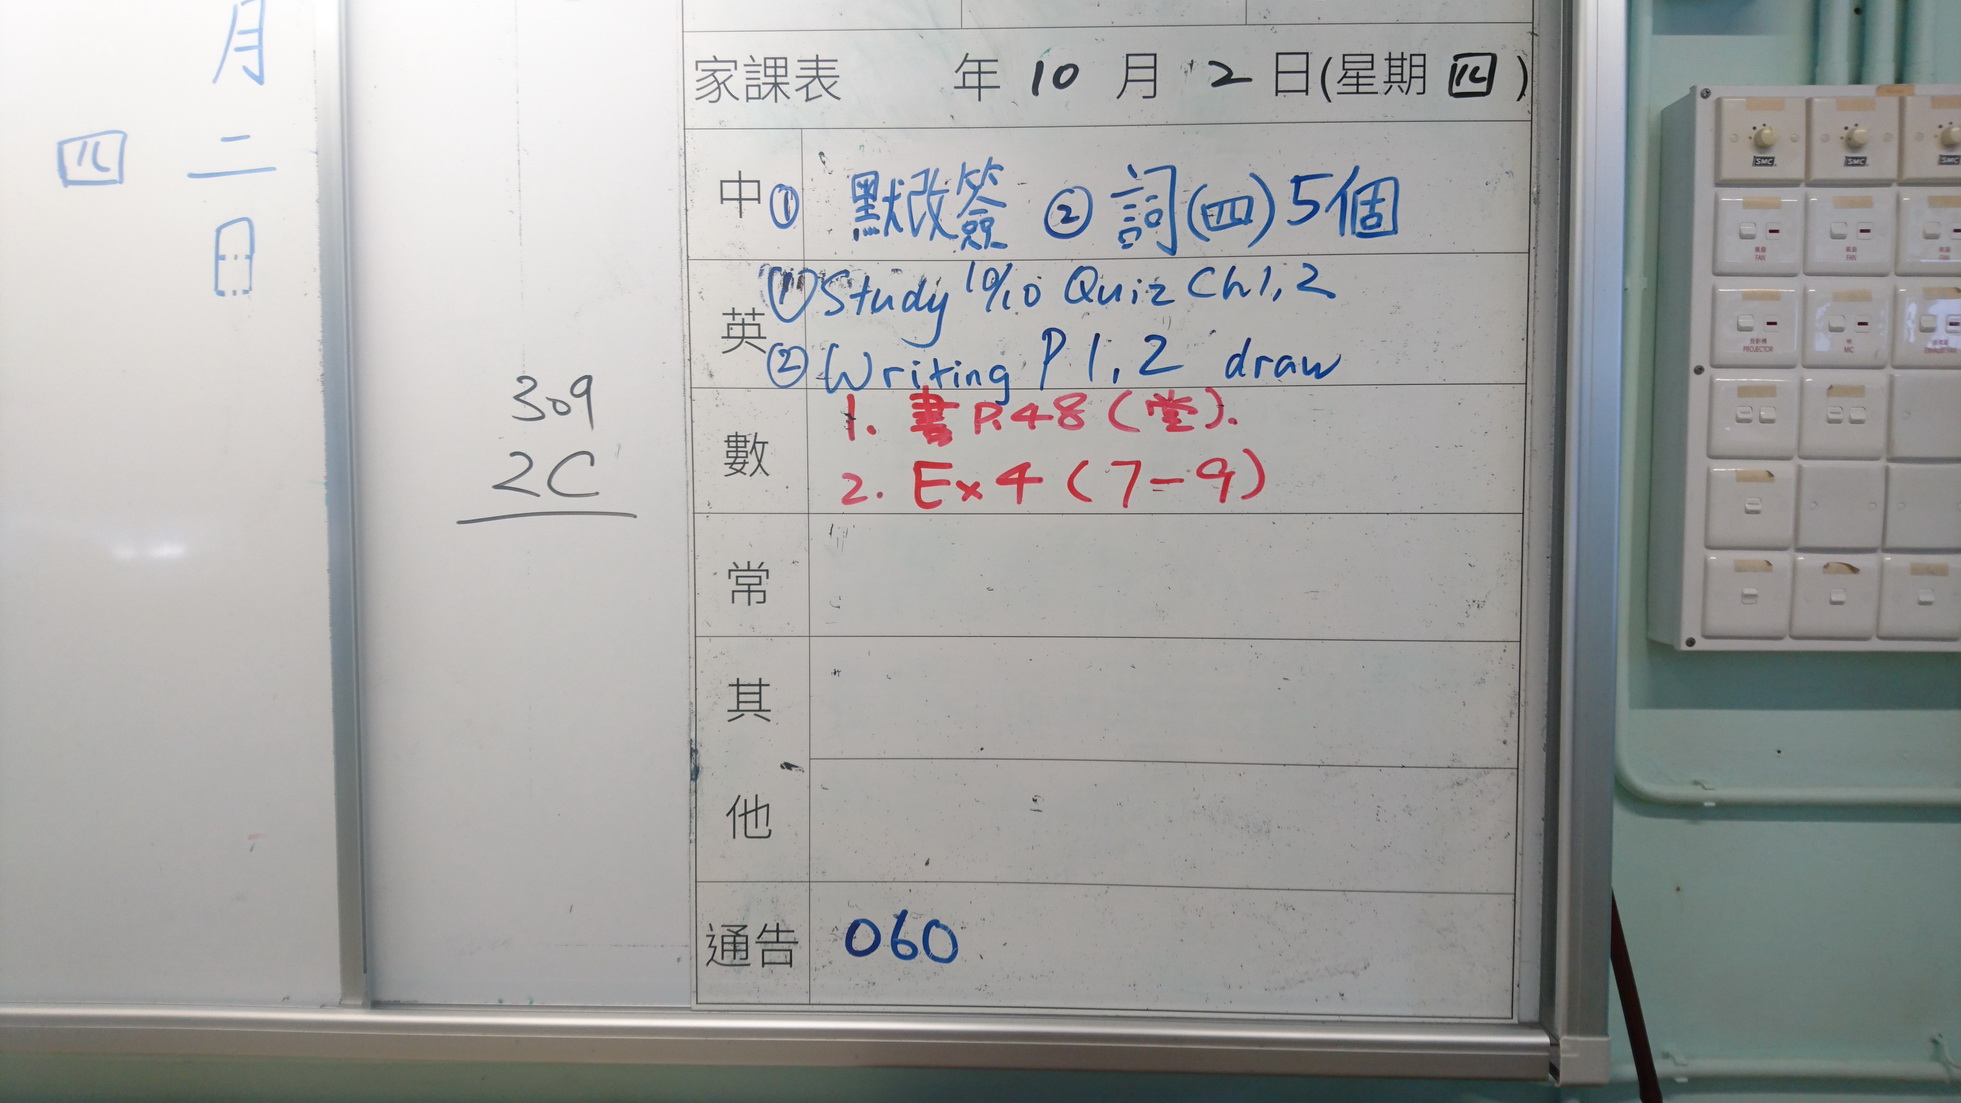 月
二
日
四
309
2C
家課表 年 10 月 2 日(星期 四 )
中 ① 默改簽 ② 詞(四)5個
英 ① Study 10/10 Quiz Ch1, 2
② Writing P 1, 2 draw
數 1. 書 P.48 (堂).
2. Ex 4 (7-9)
常
其
他
通告 060
SMC
SMC
SMC
FAN
FAN
FAN
PROJECTOR
MC